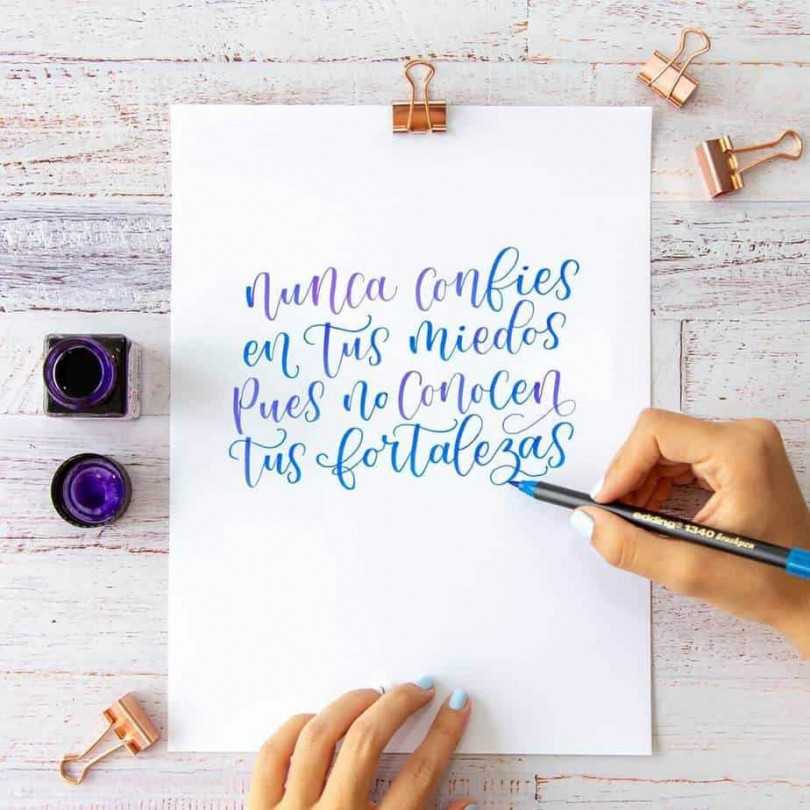 nunca confíes
en tus miedos
Pues no conocen
tus fortalezas
edding 1340 brushpen